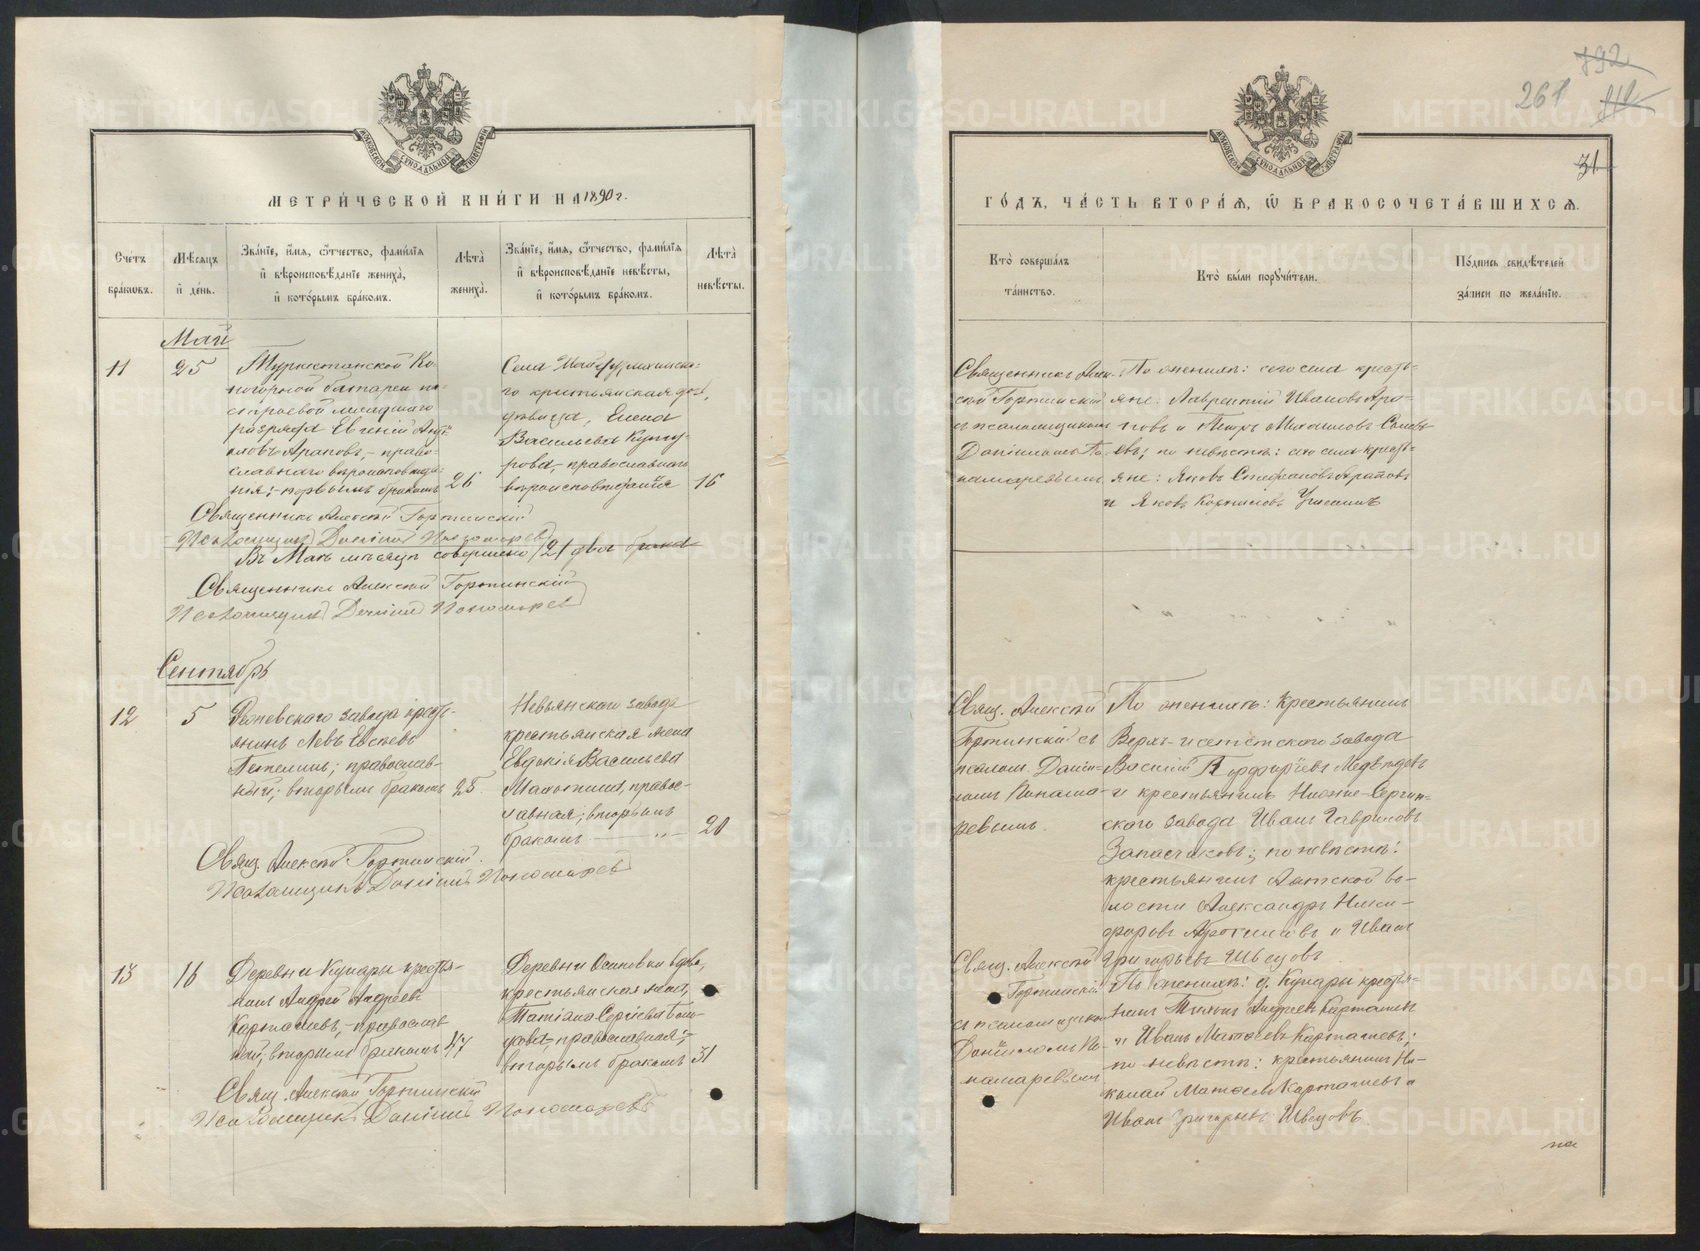 МЕТРИ́ЧЕСКОЙ КНИ́ГИ НА 1890 г.
Сче́тъ бра́ковъ.
Мѣ́сяцъ и҆ де́нь.
Зва́нїе, и҆́мя, ѻ҆́тчество, фами́лїя
и҆ вѣроисповѣ́данїе жениха̀,
и҆ кото́рымъ бра́комъ.
Лѣта̀ жениха̀.
Зва́нїе, и҆́мя, ѻ҆́тчество, фами́лїя
и҆ вѣроисповѣ́данїе невѣ́сты,
и҆ кото́рымъ бра́комъ.
Лѣта̀ невѣ́сты.
Май
11
25
Туркестанской Ко-
ногорной батареи не-
строевой младшаго
разряда Евгеній
Араповъ, - право-
славнаго вѣроисповѣда-
нія; - первымъ бракомъ
26
Села
го крестьянская до-
, Елена
Васильева Кунгу-
рова, - православнаго
вѣроисповѣданія
16
Священникъ Алексій Гортинскій
Псаломщикъ Даніилъ Пономаревъ
Въ Маѣ мѣсяцѣ совершено /2/ два брака
Священникъ Алексій Гортинскій
Псаломщикъ Даніилъ Пономаревъ
Сентябрь
12
5
Режевского завода кресть-
янинъ Левъ Евсѣевъ
православ-
ный; вторымъ бракомъ
25.
Невьянскаго завода
крестьянская жена
Евдокія Васильева
Махотина, правос-
лавная; вторымъ
бракомъ - „ -
20
Свящ. Алексій Гортинскій.
Псаломщикъ Даніилъ Пономаревъ
13
16
Деревни Кунары кресть-
нинъ Андрей Андреевъ
Карташевъ, - православ
ный; вторымъ бракомъ
47
Деревни Осиновки вдова,
крестьянская жена,
Татіана Сергіева
православная; -
вторымъ бракомъ
31
Свящ. Алексій Гортинскій
Псаломщикъ Даніилъ Пономаревъ
892
261
31
ГО́ДЪ, ЧА́СТЬ ВТОРА́Я, Ѡ҆ БРАКОСОЧЕТА́ВШИХСЯ.
Кто̀ соверша́лъ та́инство.
Кто̀ бы́ли поручи́тели.
По́дпись свидѣ́телей за́писи по жела́нїю.
Священникъ Алек-
сій Гортинскій
съ псаломщикомъ
Даніиломъ По-
номаревымъ
По женихѣ: сего села кресть-
яне: Лаврентій Ивановъ Ара-
повъ и Петръ Михаиловъ
евъ; по невѣстѣ: сего села кресть-
яне: Яковъ Стефановъ Араповъ
и Яковъ
Свящ. Алексій
Гортинскій съ
псалом. Даніи-
ломъ Понома-
ревымъ.
По женихѣ: крестьянинъ
Верхъ-исетского завода
Василій Порфирьевъ Медвѣдевъ
и крестьянинъ Нижне-Сергин-
скаго завода Иванъ Гавриловъ
; по невѣстѣ:
крестьянинъ Аятской во-
лости Александръ Ники-
форовъ и Иванъ
Григорьевъ Швецовъ
Свящ. Алексій
Гортинскій
съ псаломщикомъ
Даніиломъ По-
номаревымъ
По женихѣ: д. Кунары крестья-
нинъ Андреевъ Карташевъ
и Иванъ Матѳеевъ Карташевъ;
по невѣстѣ: крестьянинъ Ни-
колай Матѳеевъ Карташевъ и
Иванъ Григорьевъ Швецовъ.
на
METRIKI.GASO-URAL.RU